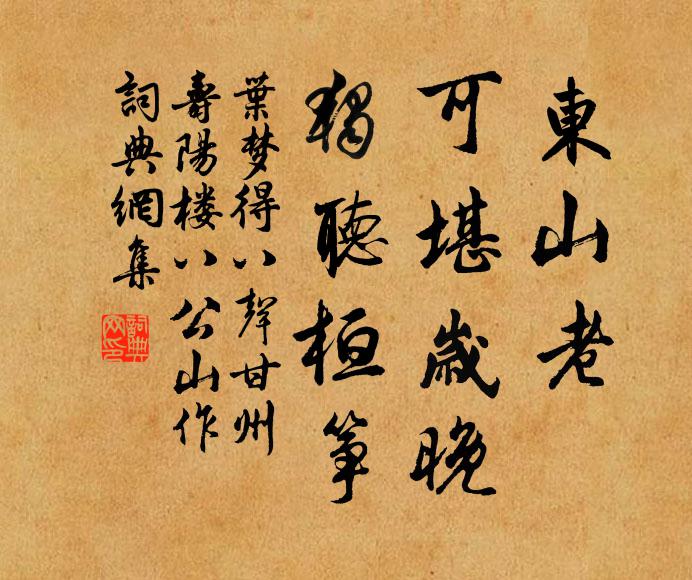 東山老
可堪歲晚
獨聽桓箏
葉梦得八聲甘州
壽陽楼八公山作
詞典網集
詞典网印